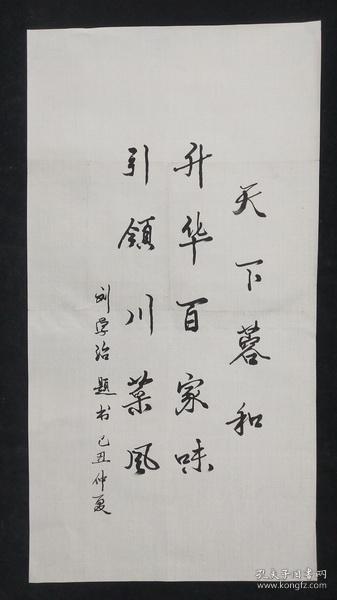 天下蓉和
升华百家味
引領川菜風
刘学治题书 己丑仲夏
孔夫子旧书网
www.kongfz.com